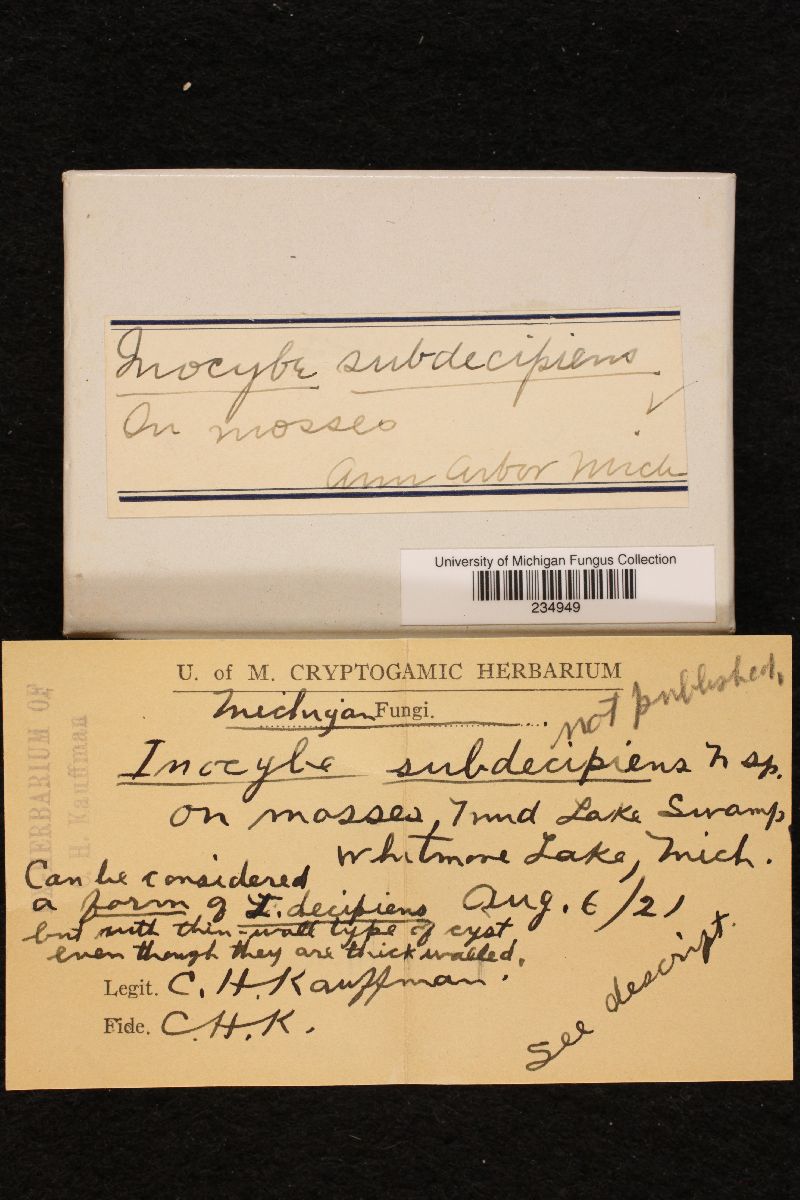 Inocybe subdecipiens.
On mosses
Ann Arbor Mich
University of Michigan Fungus Collection
234949
U. of M. CRYPTOGAMIC HERBARIUM
Michigan Fungi.
not published.
Inocybe subdecipiens n sp.
on mosses, Mud Lake Swamp
Whitmore Lake, Mich.
Can be considered
a form of I. decipiens Aug. 6/21
but with thin-wall type of cyst
even though they are thick walled.
Legit. C. H. Kauffman.
Fide. C.H.K.
See descript.
HERBARIUM OF
H. Kauffman